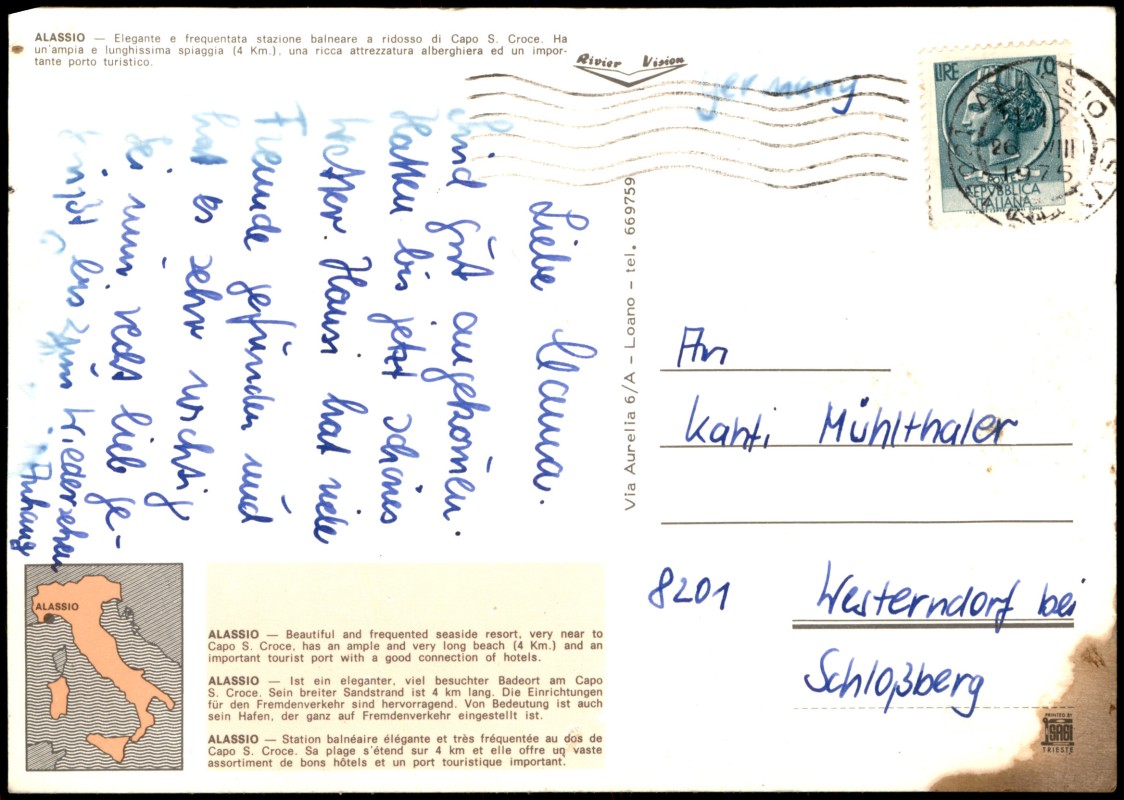 ALASSIO — Elegante e frequentata stazione balneare a ridosso di Capo S. Croce. Ha
un'ampia e lunghissima spiaggia (4 Km.), una ricca attrezzatura alberghiera ed un impor-
tante porto turistico.
Rivier Vision
Germany
LIRE 70
26 VIII
1975
REPVBBLICA
ITALIANA
Liebe Mama.
Sind gut angekommen.
Hatten bis jetzt schönes
Wetter. Hansi hat viele
Freunde gefunden und
hat es sehr wichtig
Sei nun recht lieb ge-
grüßt bis zum Wiedersehen
Via Aurelia 6/A - Loano - tel. 669759
An
Kathi Mühlthaler
8201 Westerndorf bei
Schloßberg
ALASSIO
ALASSIO — Beautiful and frequented seaside resort, very near to
Capo S. Croce, has an ample and very long beach (4 Km.) and an
important tourist port with a good connection of hotels.
ALASSIO — Ist ein eleganter, viel besuchter Badeort am Capo
S. Croce. Sein breiter Sandstrand ist 4 km lang. Die Einrichtungen
für den Fremdenverkehr sind hervorragend. Von Bedeutung ist auch
sein Hafen, der ganz auf Fremdenverkehr eingestellt ist.
ALASSIO — Station balnéaire élégante et très fréquentée au dos de
Capo S. Croce. Sa plage s'étend sur 4 km et elle offre un vaste
assortiment de bons hôtels et un port touristique important.
PRINTED BY
SAGI
TRIESTE